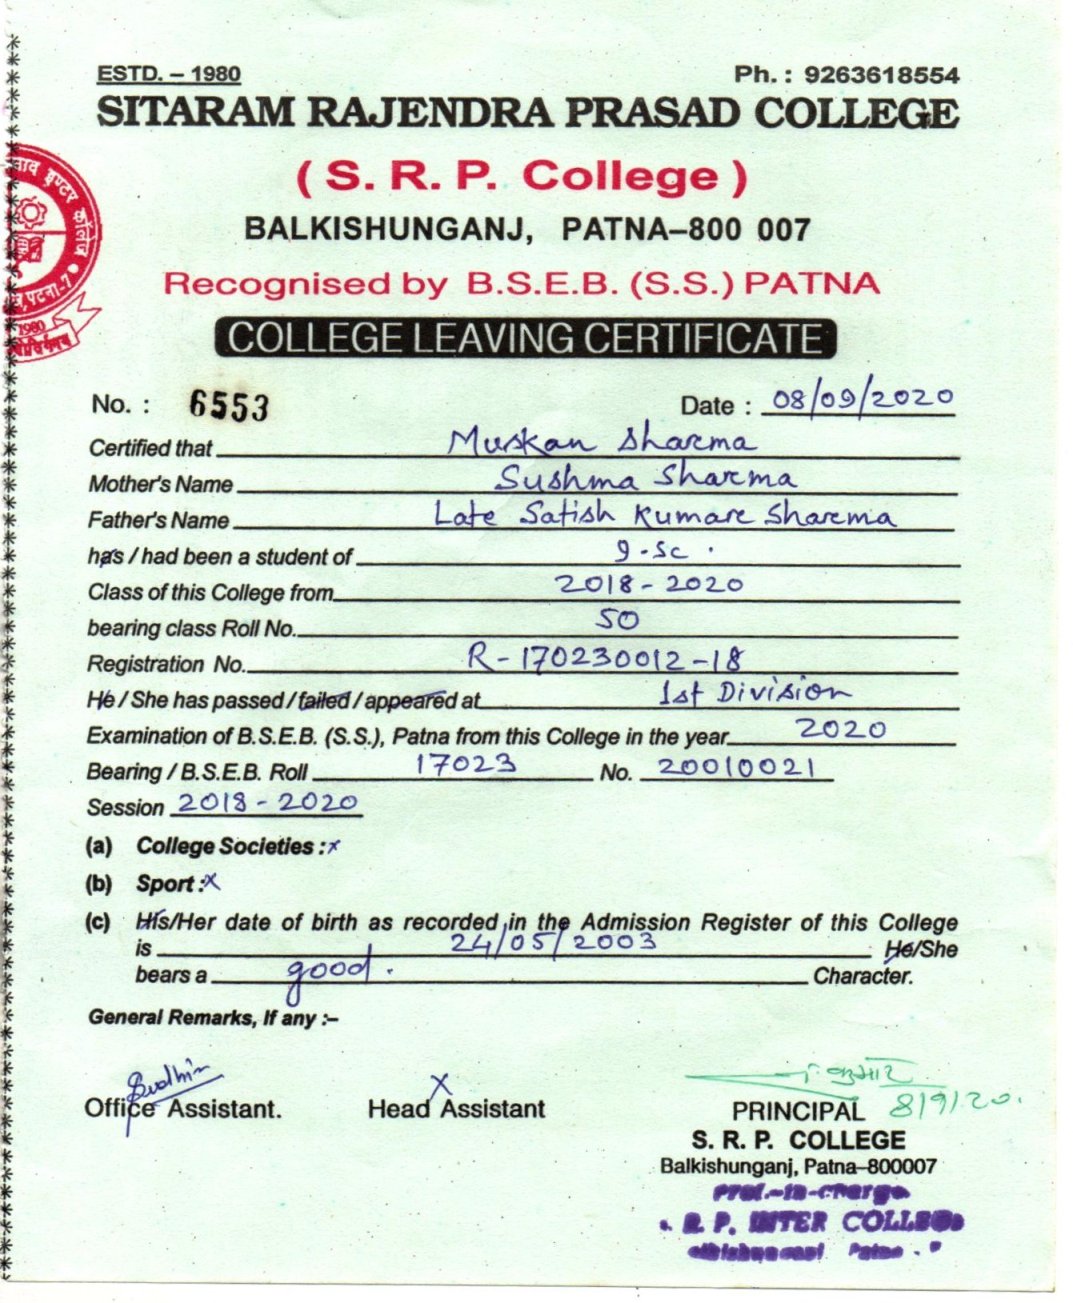 ESTD. – 1980 Ph. : 9263618554
SITARAM RAJENDRA PRASAD COLLEGE
( S. R. P. College )
BALKISHUNGANJ, PATNA–800 007
Recognised by B.S.E.B. (S.S.) PATNA
इण्टर कॉलेज
पटना-7
1980
COLLEGE LEAVING CERTIFICATE
No. : 6553 Date : 08/09/2020
Certified that Muskan Sharma
Mother's Name Sushma Sharma
Father's Name Late Satish Kumar Sharma
has / had been a student of I.Sc.
Class of this College from 2018-2020
bearing class Roll No. 50
Registration No. R-170230012-18
He / She has passed / failed / appeared at 1st Division
Examination of B.S.E.B. (S.S.), Patna from this College in the year 2020
Bearing / B.S.E.B. Roll 17023 No. 20010021
Session 2018-2020
(a) College Societies : x
(b) Sport : x
(c) His/Her date of birth as recorded in the Admission Register of this College
is 24/05/2003 He/She
bears a good. Character.
General Remarks, If any :–
x कुमार
8/9/20.
Office Assistant. Head Assistant PRINCIPAL
S. R. P. COLLEGE
Balkishunganj, Patna–800007
Prof.-in-charge
R. P. INTER COLLEGE
Patna